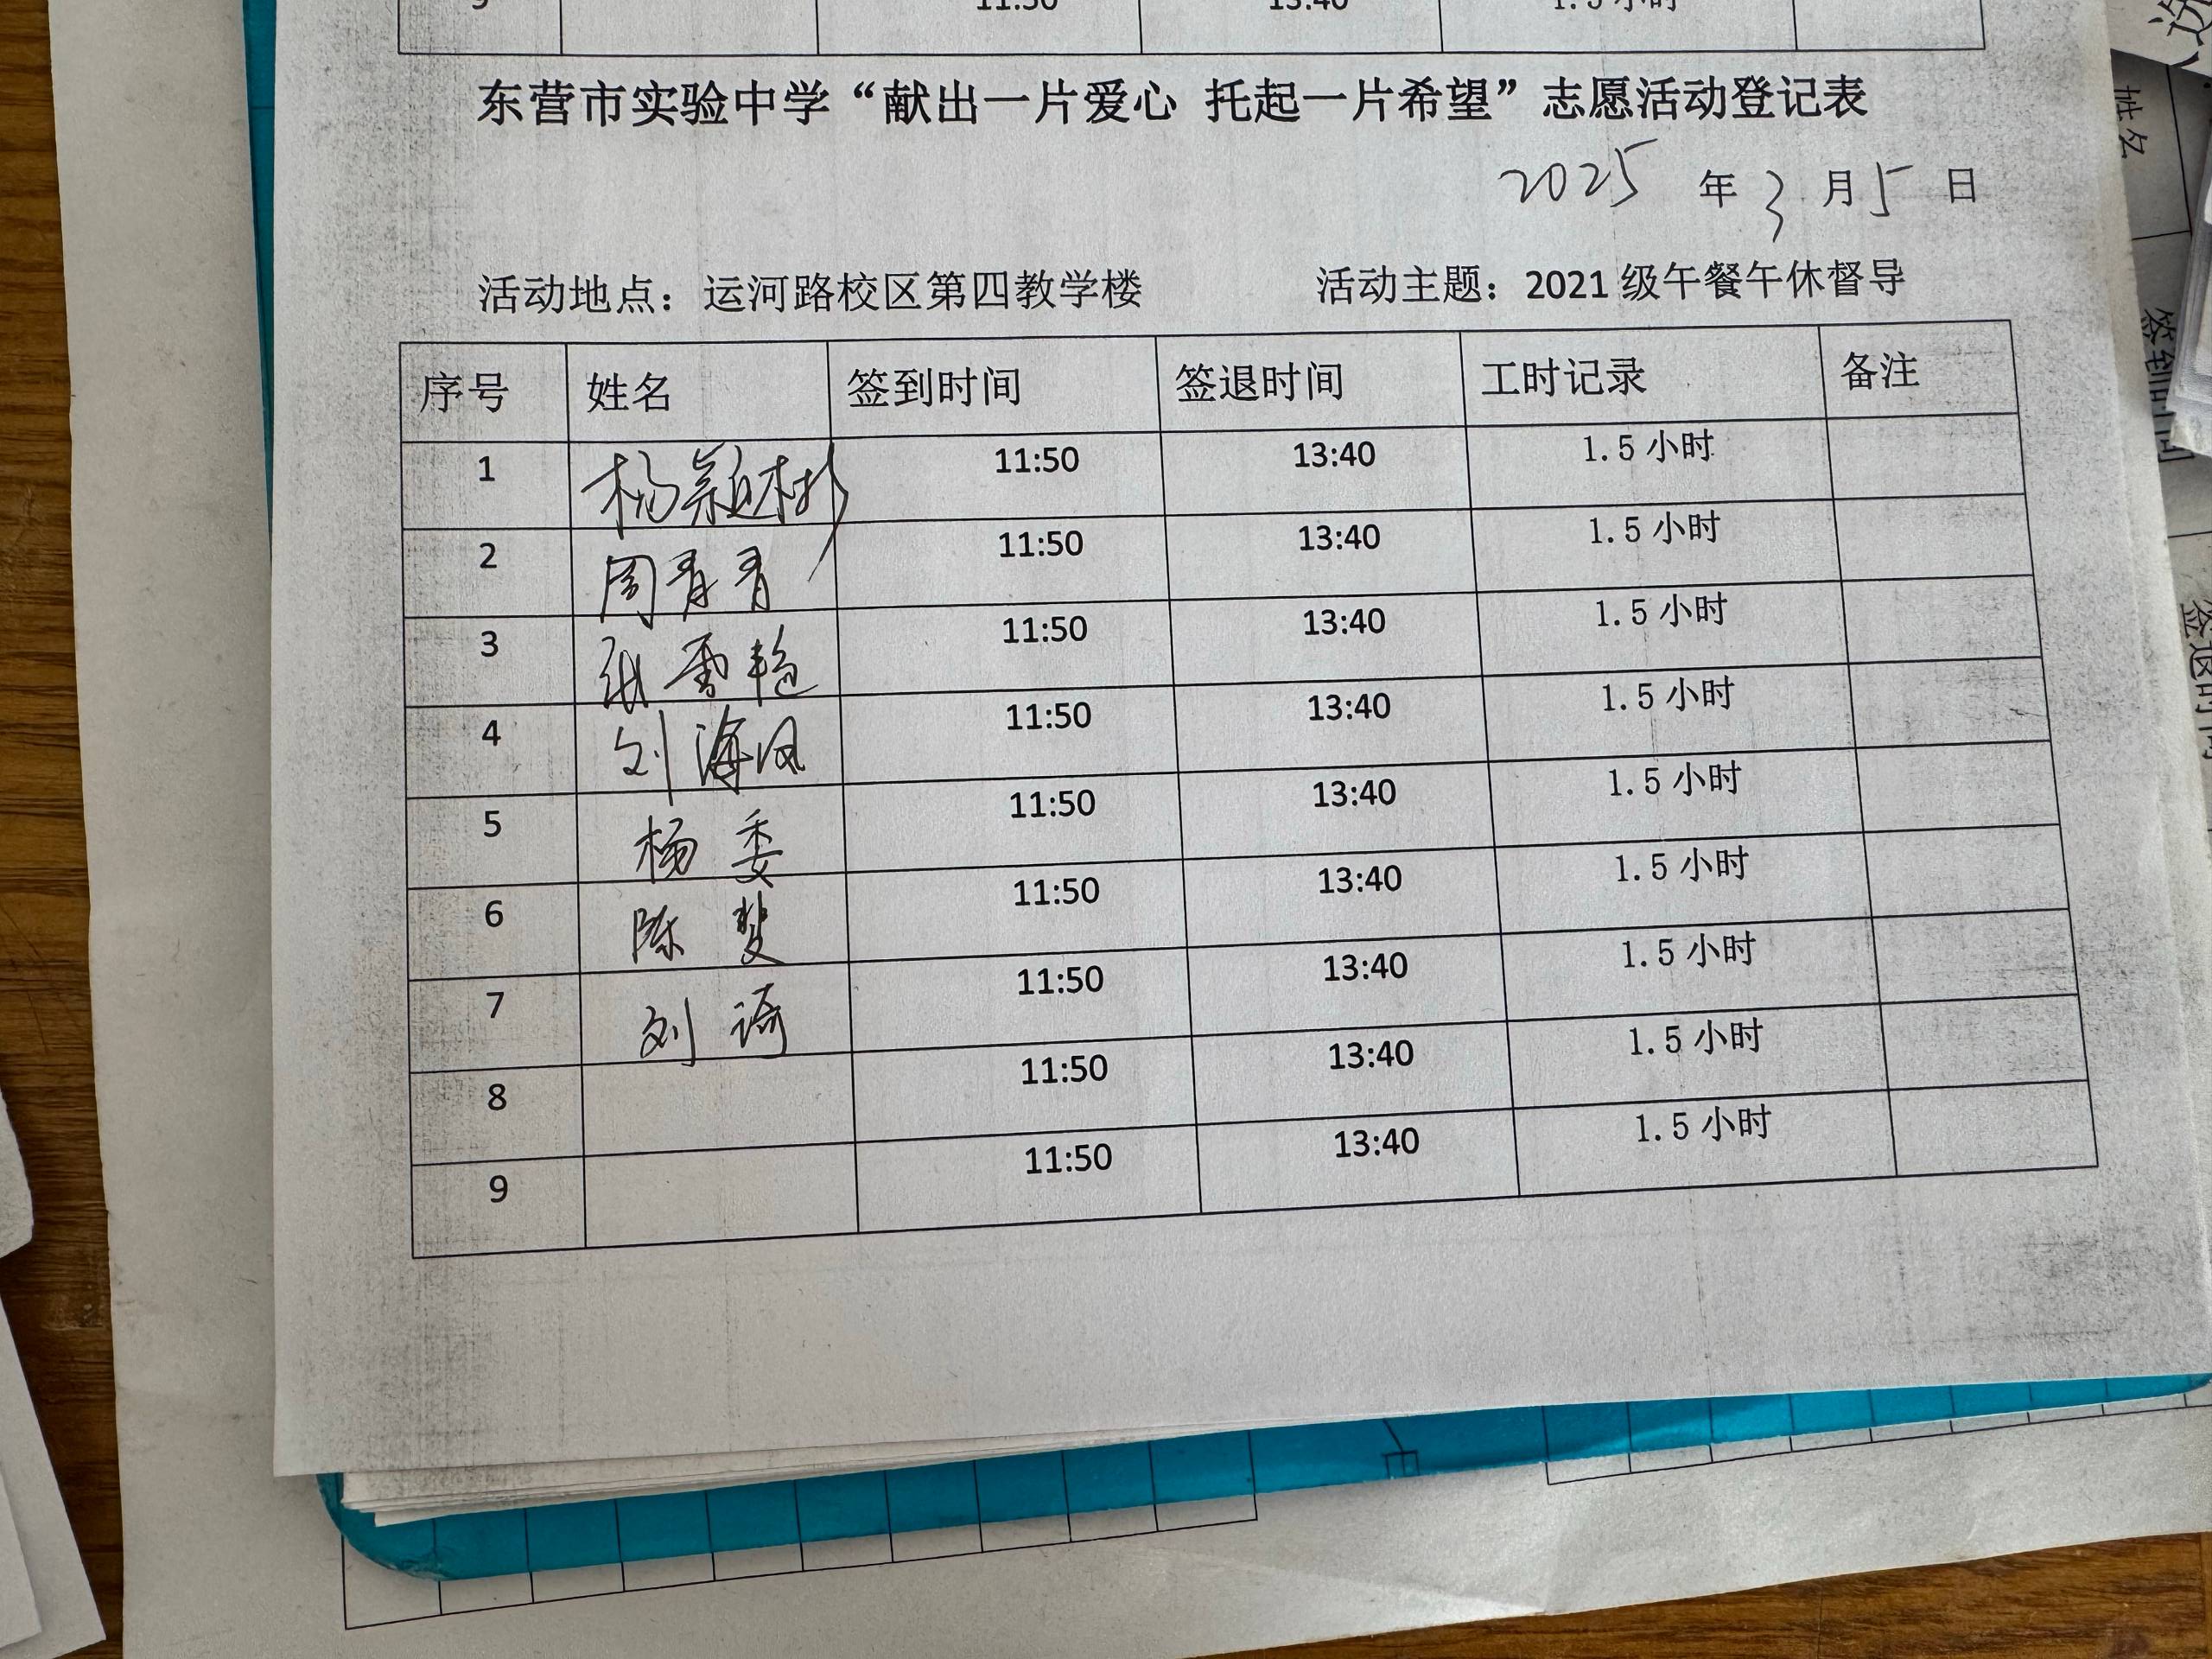 9 11:50 13:40 1.5 小时
东营市实验中学“献出一片爱心 托起一片希望”志愿活动登记表
2025 年 3 月 5 日
活动地点：运河路校区第四教学楼 活动主题：2021 级午餐午休督导
序号 姓名 签到时间 签退时间 工时记录 备注
1 杨颖彬 11:50 13:40 1.5 小时
2 周青青 11:50 13:40 1.5 小时
3 张雪艳 11:50 13:40 1.5 小时
4 刘海凤 11:50 13:40 1.5 小时
5 杨委 11:50 13:40 1.5 小时
6 陈斐 11:50 13:40 1.5 小时
7 刘琦 11:50 13:40 1.5 小时
8 11:50 13:40 1.5 小时
9 11:50 13:40 1.5 小时
姓名
签到时间
签退时间